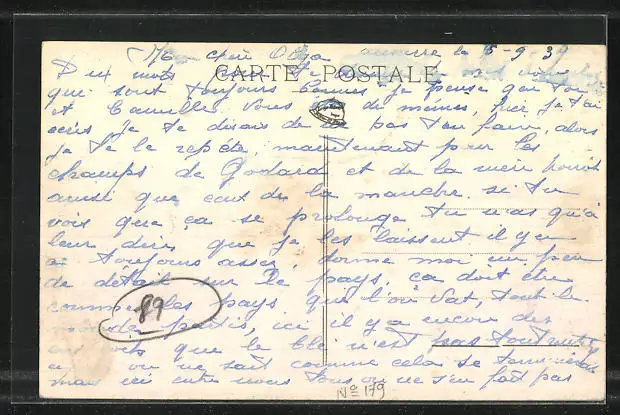 Ma chère Olga Auxerre le 5-9-39
Deux mots pour te
CARTE POSTALE
que sont toujours bonnes je pense que toi
et Camille vous de mêmes, hier je t'ai
écris je te disais de ne pas t'en faire, alors
je te le repete, maintenant pour les
champs de Godard et de la mère
aussi que ceux de la manche. si tu
vois que ça se prolonge tu n'as qu'à
leur dire que je les laissent il y en
a toujours assez, donne moi un peu
de détail sur le pays, ça doit être
comme les pays que l'on vat, tout le
monde partis, ici il y a encore des
que le blé n'est pas tout
on ne sait comme cela se
mais ici entre nous tous on ne s'en fait pas
89
No 179